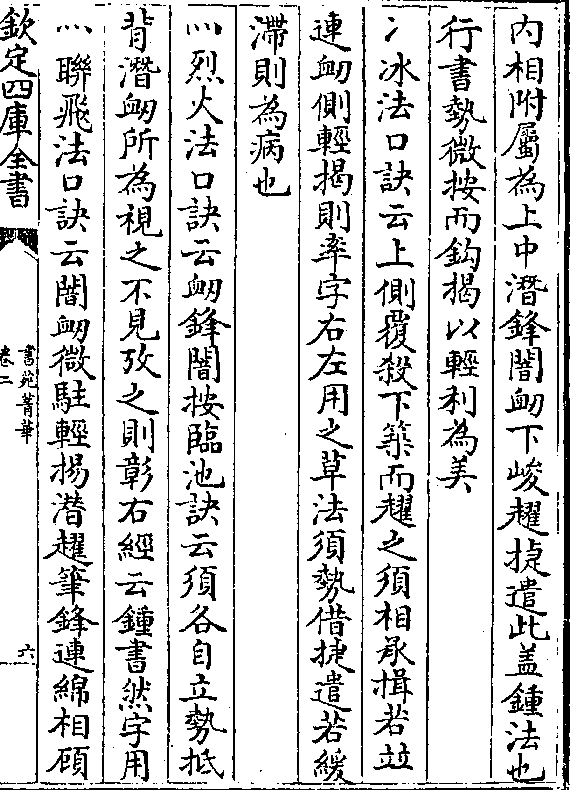 内相附屬為上中潛鋒闇衂下峻趯捷遣此盖鍾法也
行書勢微按而鈎揭以輕利為美
冫冰法口訣云上側覆殺下築而趯之須相承揖若竝
連衂側輕揭則率字右左用之草法須勢借捷遣若緩
滯則為病也
灬烈火法口訣云衂鋒闇按臨池訣云須各自立勢抵
背潛衂所為視之不見攷之則彰右經云鍾書然字用
灬聯飛法口訣云闇衂微駐輕揚潛趯筆鋒連綿相顧
欽定四庫全書
書苑菁華
卷二
六